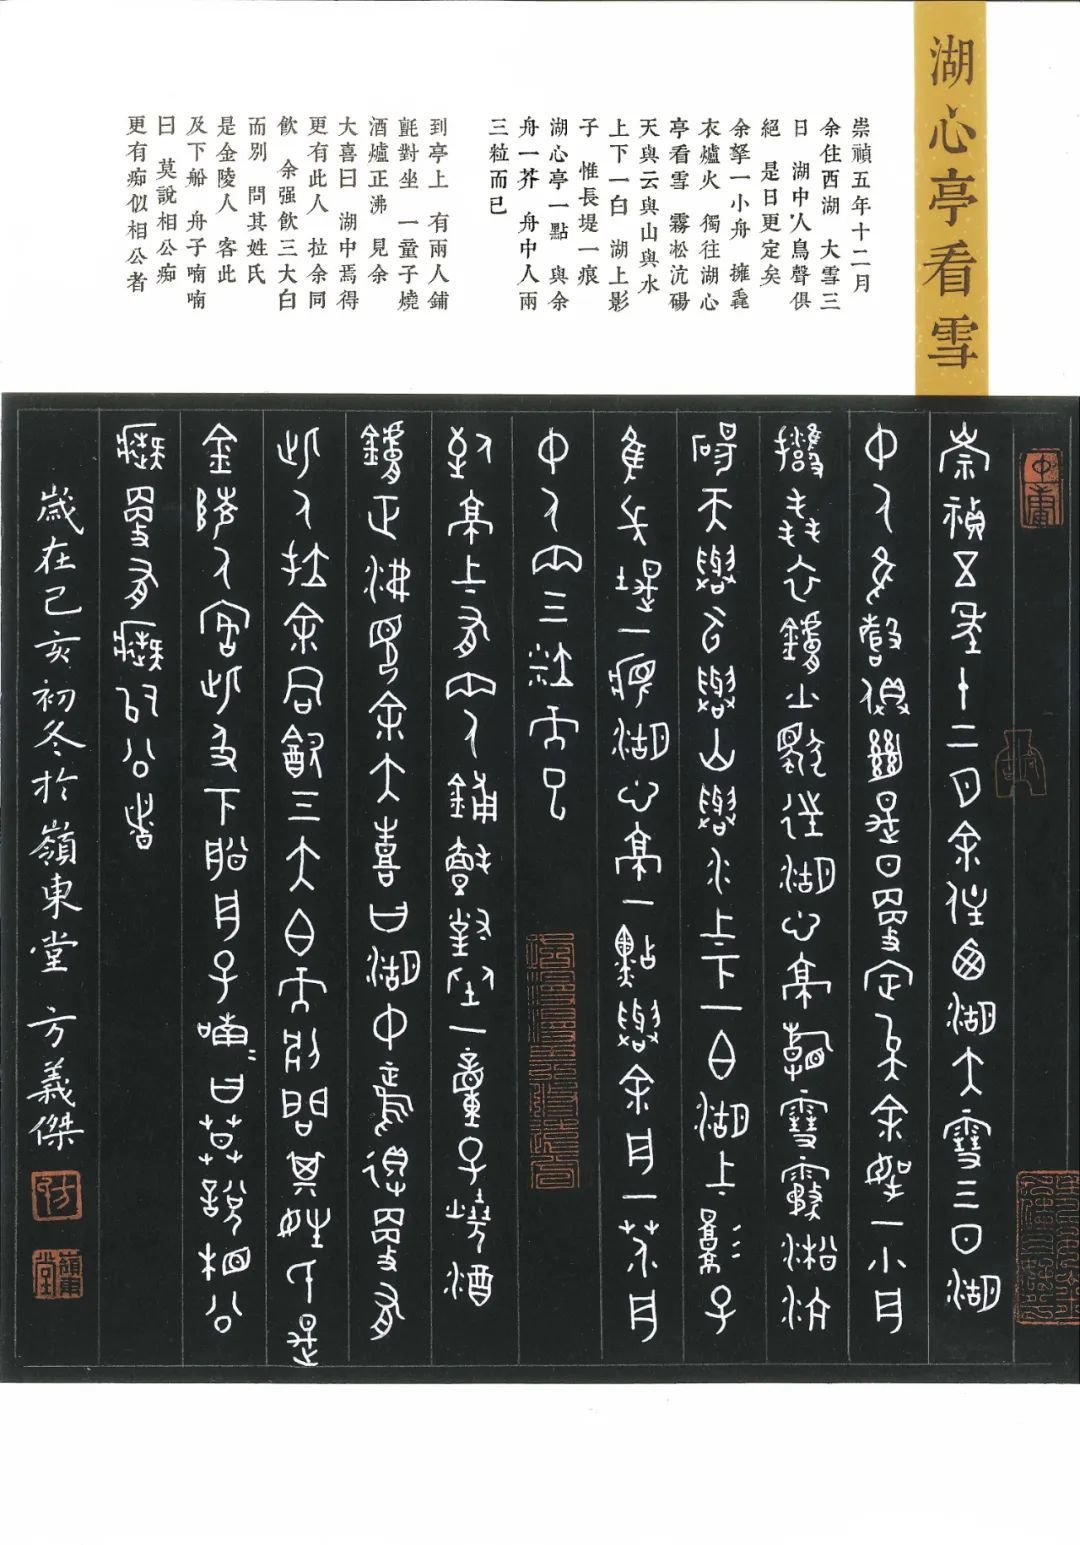 湖心亭看雪
崇禎五年十二月
余住西湖 大雪三
日 湖中人鳥聲俱
絕 是日更定矣
余拏一小舟 擁毳
衣爐火 獨往湖心
亭看雪 霧淞沆碭
天與云與山與水
上下一白 湖上影
子 惟長堤一痕
湖心亭一點 與余
舟一芥 舟中人兩
三粒而已
到亭上 有兩人鋪
氈對坐 一童子燒
酒爐正沸 見余
大喜曰 湖中焉得
更有此人 拉余同
飲 余强飲三大白
而別 問其姓氏
是金陵人 客此
及下船 舟子喃喃
曰 莫說相公痴
更有痴似相公者
崇禎五年十二月余住西湖大雪三日湖
中人鳥聲俱絕是日更定矣余拏一小舟
擁毳衣鑪火獨往湖心亭看雪霧淞沆
碭天與云與山與水上下一白湖上影子
隹長堤一痕湖心亭一點與余舟一芥舟
中人兩三粒而已
到亭上有兩人鋪氈對坐一童子燒酒
鑪正沸見余大喜曰湖中焉得更有
此人拉余同飲三大白而別問其姓氏是
金陵人客此及下船舟子喃喃曰莫說相公
癡更有癡似公者
歲在己亥初冬於嶺東堂 方義傑
中庸
方
嶺東堂